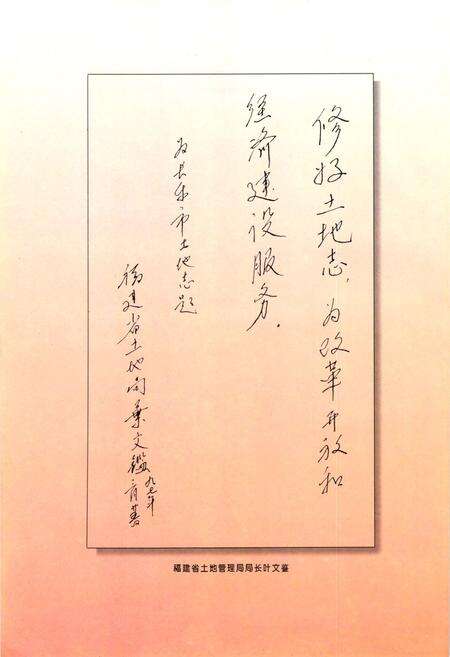 修好土地志，为改革开放和
经济建设服务。
为长乐市土地志题
福建省土地局叶文鑑
九七年
福建省土地管理局局长叶文鉴